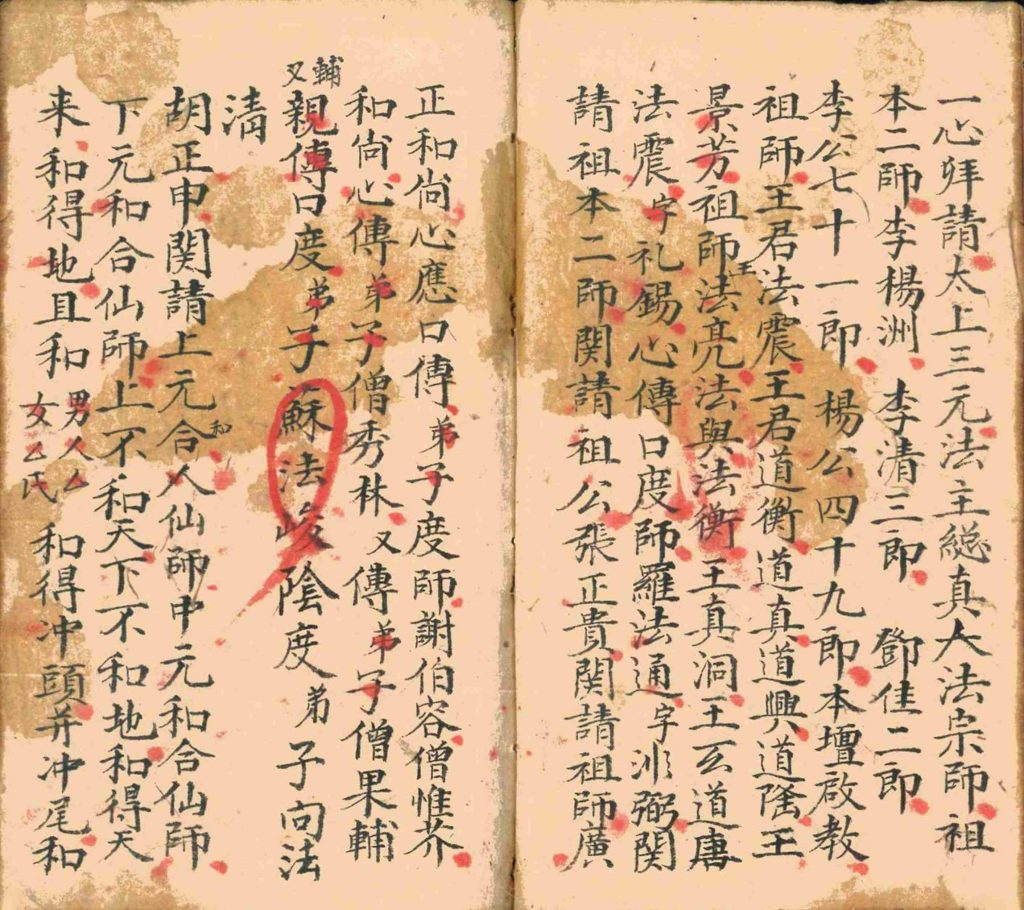 一心拜請太上三元法主總真大法宗師祖
本二師李楊洲 李清三郎 鄧佳二郎
李公七十一郎 楊公四十九郎本壇啟教
祖師王君法震王君道衡道真道興道隆王
景芳祖師王法亮法與法衡王真洞王云道唐
法震字礼錫心傳口度師羅法通字 弼関
請祖本二師関請祖公張正貴関請祖師廣
正和尚心應口傳弟子度師謝伯容僧惟芥
和尚心傳弟子僧秀林又傳弟子僧果輔
又輔親傳口度弟子蘇法 陰度弟子向法
清
胡正申関請上元和合人仙師中元和合仙師
下元和合仙師上不和天下不和地和得天
来和得地且和男人厶女乙氏和得冲頭并冲尾和